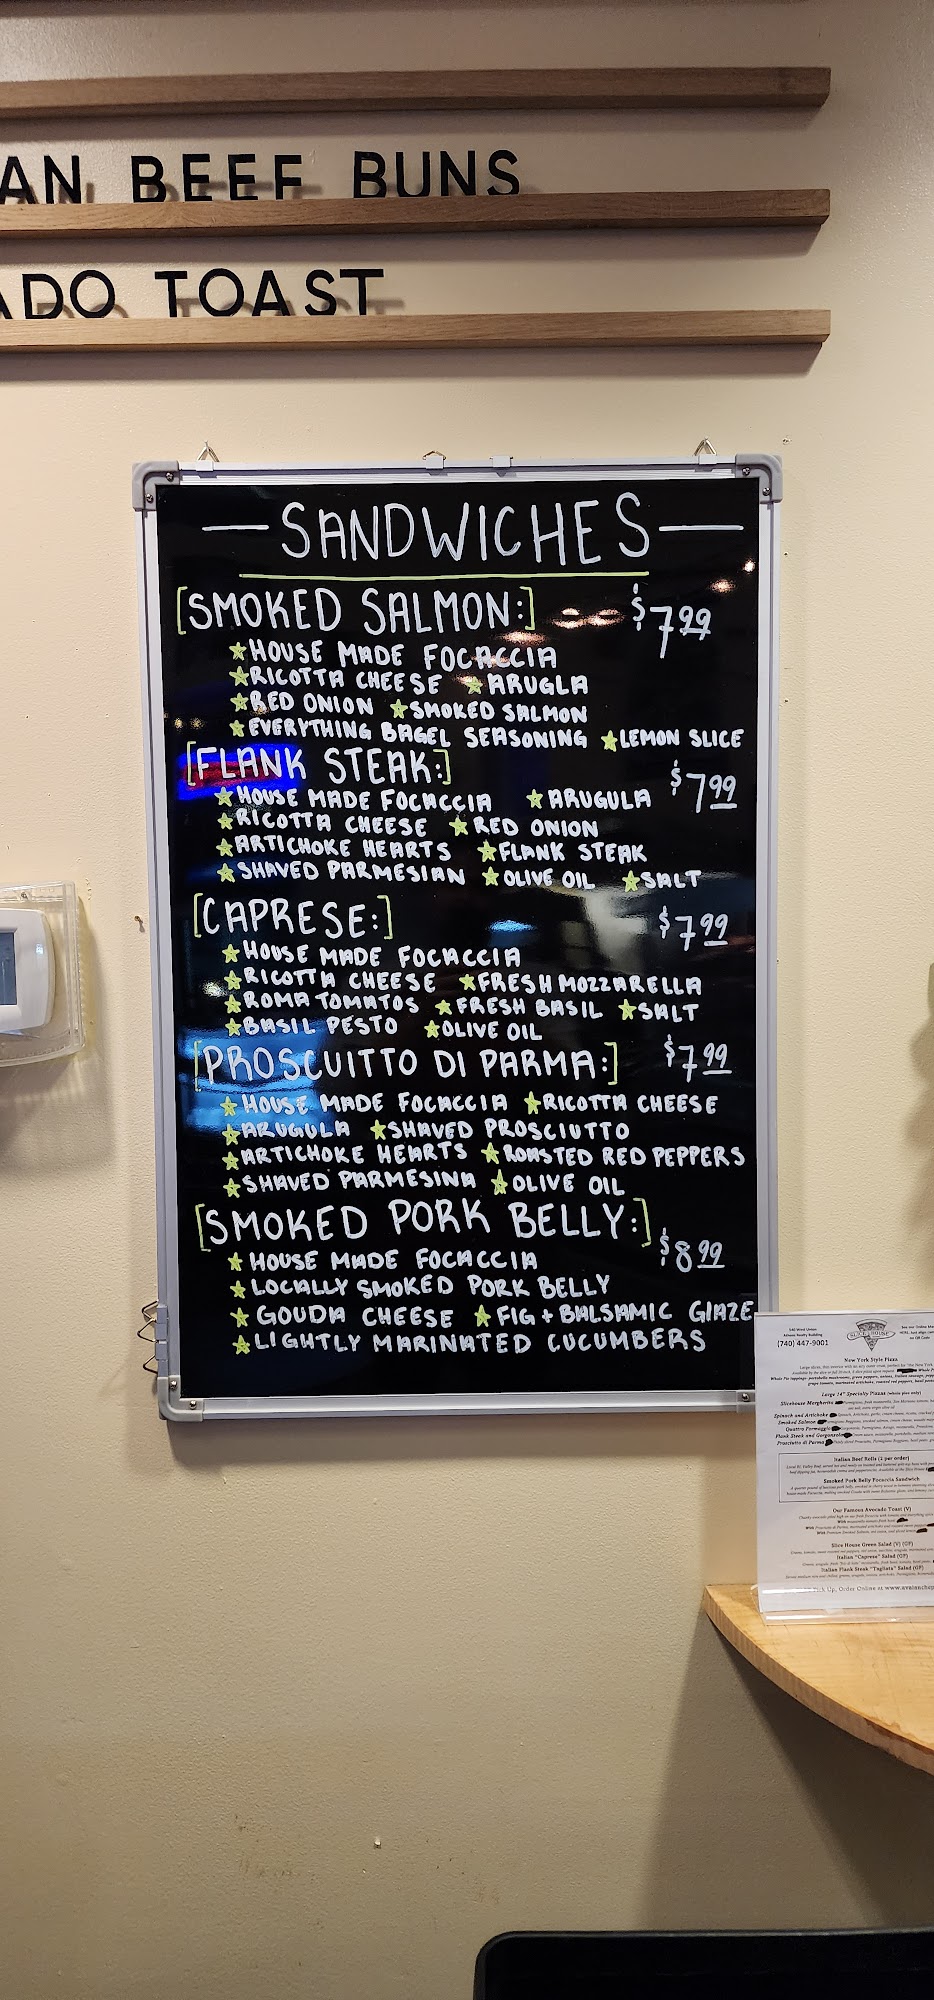 AN BEEF BUNS
ADO TOAST
SANDWICHES
[SMOKED SALMON:] $7.99
HOUSE MADE FOCACCIA
RICOTTA CHEESE ARUGLA
RED ONION SMOKED SALMON
EVERYTHING BAGEL SEASONING LEMON SLICE
[FLANK STEAK:] $7.99
HOUSE MADE FOCACCIA ARUGULA
RICOTTA CHEESE RED ONION
ARTICHOKE HEARTS FLANK STEAK
SHAVED PARMESIAN OLIVE OIL SALT
[CAPRESE:] $7.99
HOUSE MADE FOCACCIA
RICOTTA CHEESE FRESH MOZZARELLA
ROMA TOMATOS FRESH BASIL SALT
BASIL PESTO OLIVE OIL
[PROSCUITTO DI PARMA:] $7.99
HOUSE MADE FOCACCIA RICOTTA CHEESE
ARUGULA SHAVED PROSCIUTTO
ARTICHOKE HEARTS ROASTED RED PEPPERS
SHAVED PARMESINA OLIVE OIL
[SMOKED PORK BELLY:] $8.99
HOUSE MADE FOCACCIA
LOCALLY SMOKED PORK BELLY
GOUDA CHEESE FIG + BALSAMIC GLAZE
LIGHTLY MARINATED CUCUMBERS
(740) 447-9001
SLICE HOUSE
New York Style Pizza
Large 14" Specialty Pizzas (whole pies only)
Slicehouse Margherita
Spinach and Artichoke
Smoked Salmon
Quattro Formaggio
Flank Steak and Gorgonzola
Prosciutto di Parma
Italian Beef Rolls (2 per order)
Smoked Pork Belly Focaccia Sandwich
Our Famous Avocado Toast (V)
Slice House Green Salad (V) (GF)
Italian "Caprese" Salad (GF)
Italian Flank Steak "Tagliata" Salad (GF)
Pick Up, Order Online at www.avalanchep